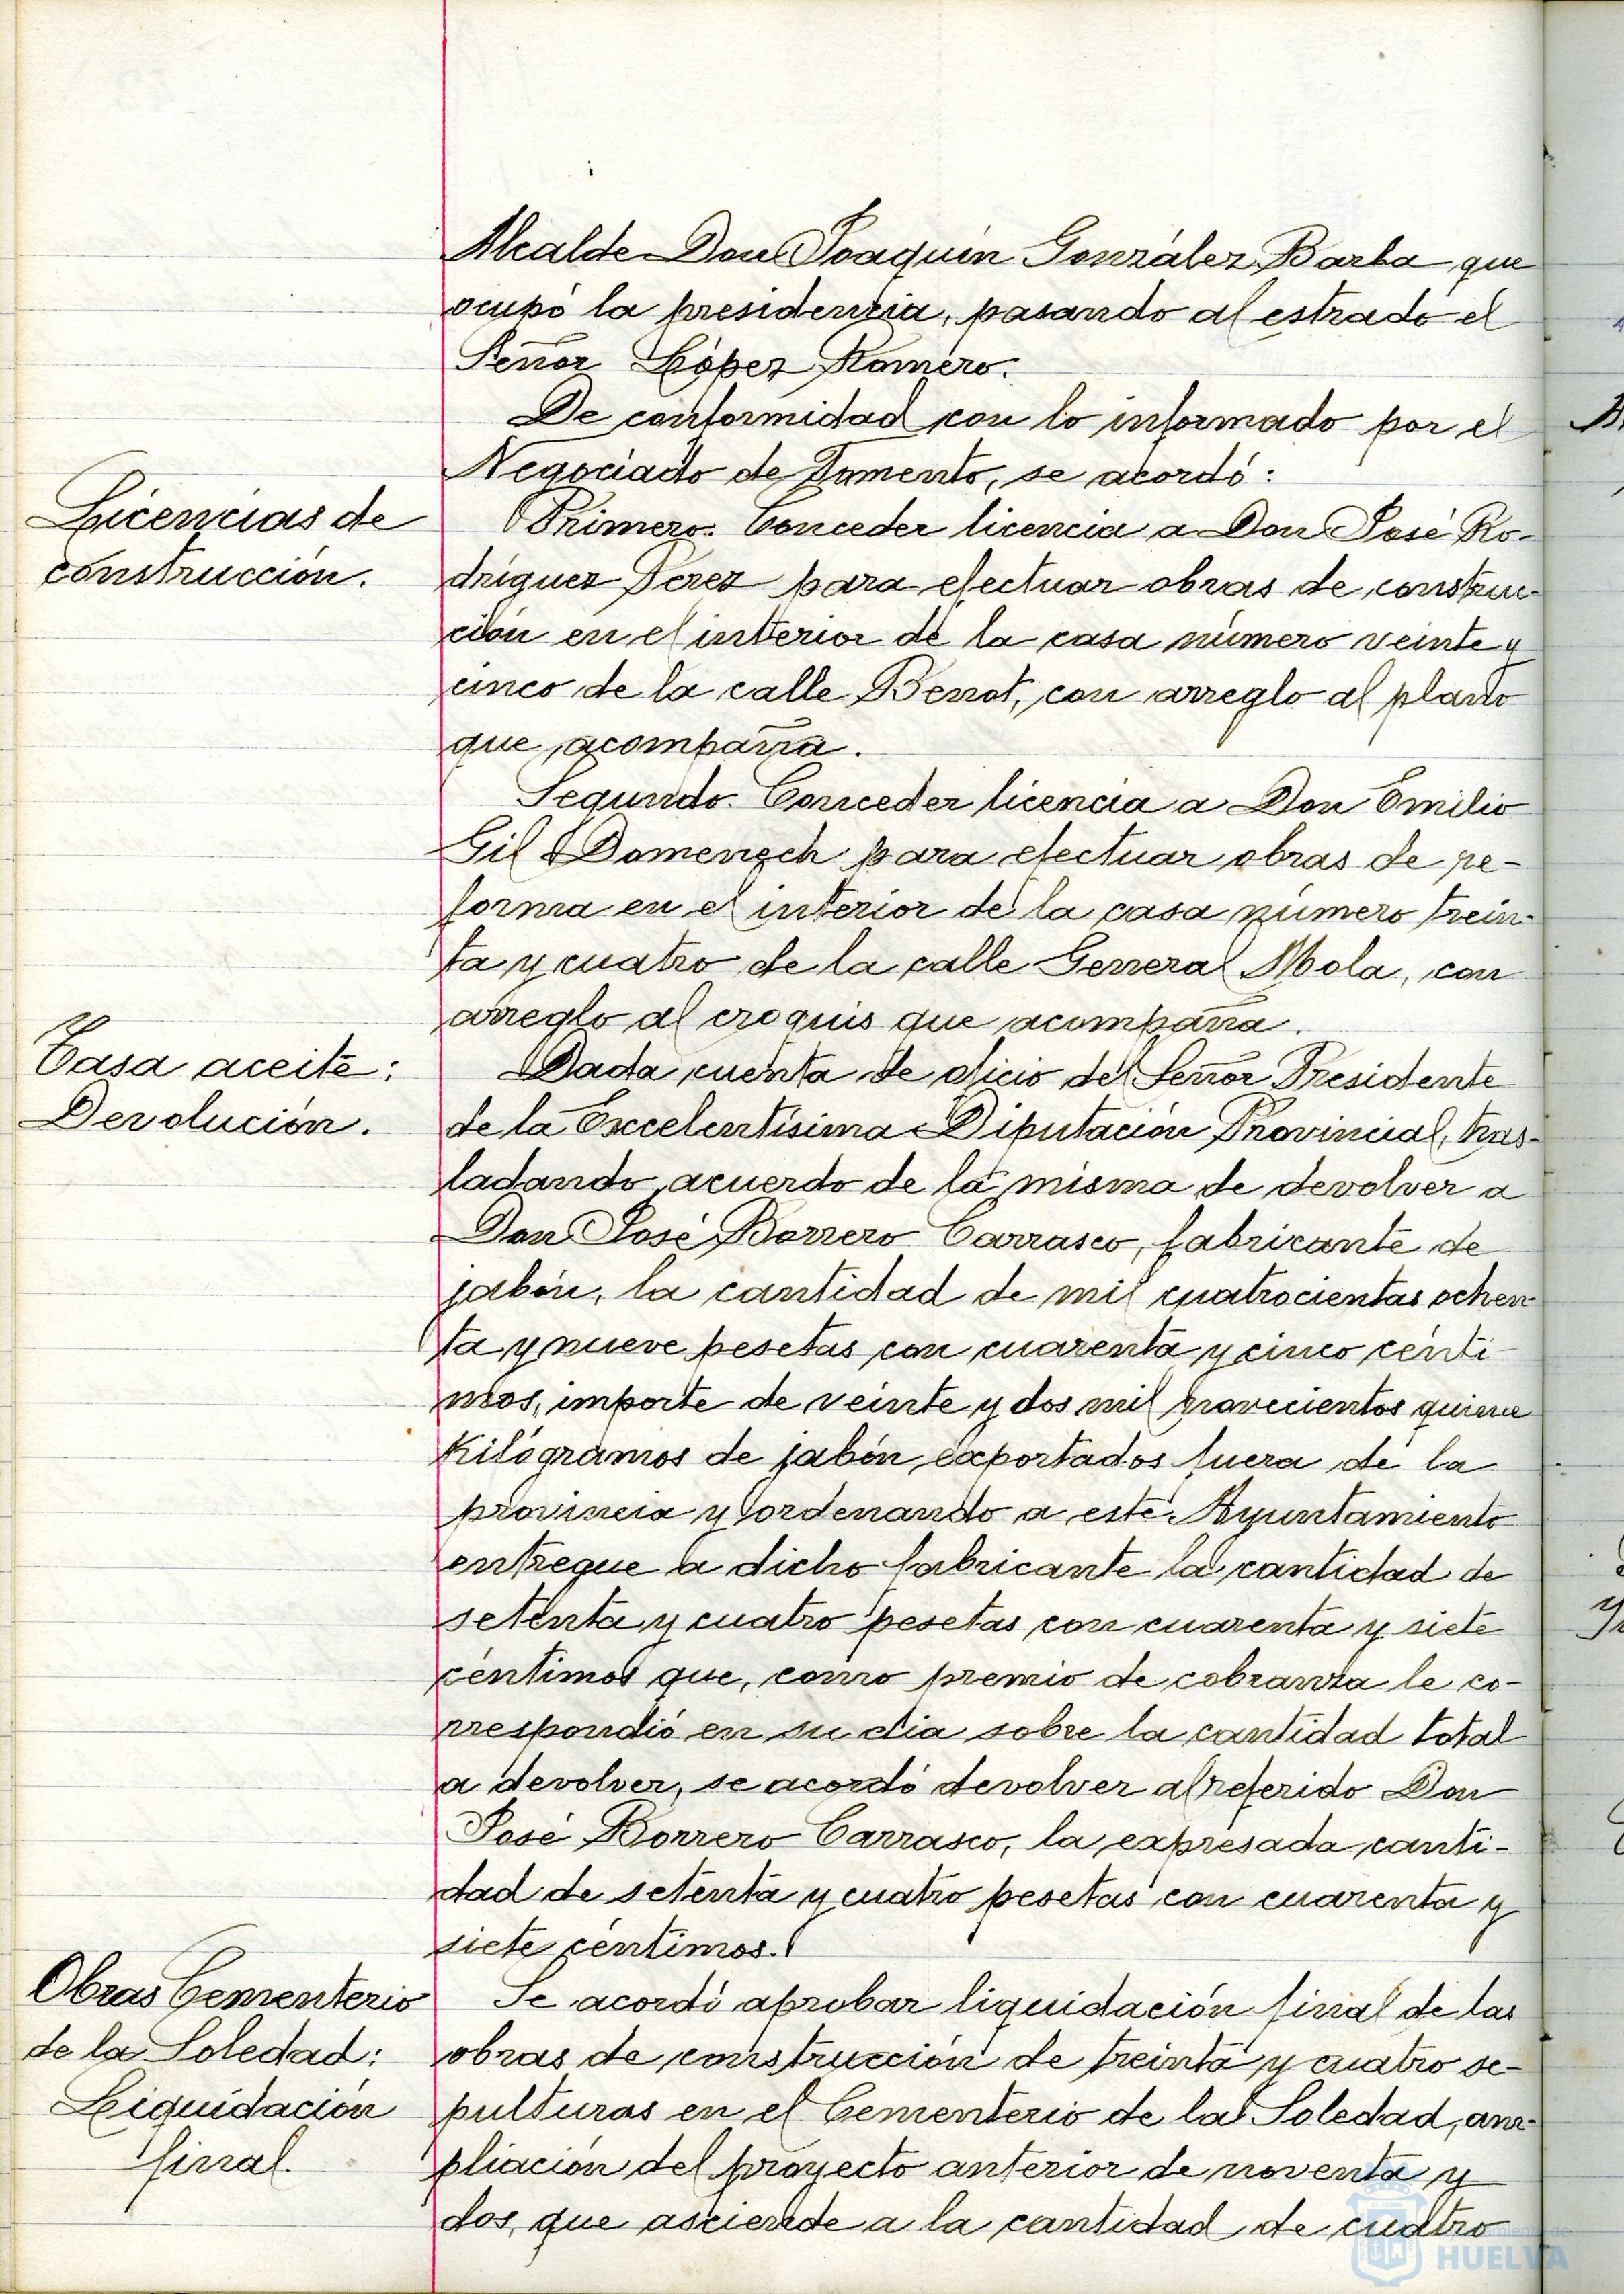 Alcalde Don Joaquín González Barba que
ocupó la presidencia, pasando al estrado el
Señor López Romero.
De conformidad con lo informado por el
Negociado de Fomento, se acordó:
Licencias de
construcción.
Primero. Conceder licencia a Don José Ro-
dríguez Perez para efectuar obras de construc-
ción en el interior de la casa número veinte y
cinco de la calle Benot, con arreglo al plano
que acompaña.
Segundo. Conceder licencia a Don Emilio
Gil Domenech para efectuar obras de re-
forma en el interior de la casa número trein-
ta y cuatro de la calle General Mola, con
arreglo al croquis que acompaña.
Tasa aceite:
Devolución.
Dada cuenta de oficio del Señor Presidente
de la Excelentísima Diputación Provincial, tras-
ladando acuerdo de la misma de devolver a
Don José Borrero Carrasco, fabricante de
jabón, la cantidad de mil cuatrocientas ochen-
ta y nueve pesetas con cuarenta y cinco cénti-
mos, importe de veinte y dos mil novecientos quince
Kilógramos de jabón exportados fuera de la
provincia y ordenando a este Ayuntamiento
entregue a dicho fabricante la cantidad de
setenta y cuatro pesetas con cuarenta y siete
céntimos que, como premio de cobranza le co-
rrespondió en su dia sobre la cantidad total
a devolver, se acordó devolver al referido Don
José Borrero Carrasco, la expresada canti-
dad de setenta y cuatro pesetas con cuarenta y
siete céntimos.
Obras Cementerio
de la Soledad:
Liquidación
final.
Se acordó aprobar liquidación final de las
obras de construcción de treinta y cuatro se-
pulturas en el Cementerio de la Soledad, am-
pliación del proyecto anterior de noventa y
dos, que asciende a la cantidad de cuatro
HUELVA